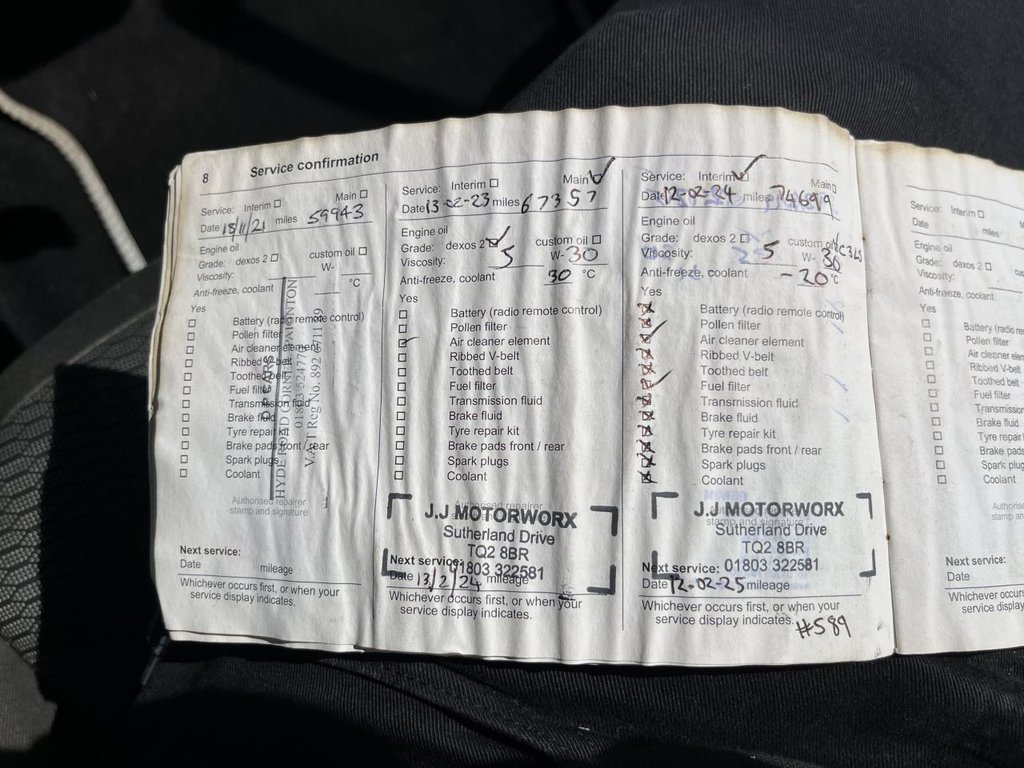 8 Service confirmation
Service: Interim Main
Date 18/11/21 miles 59943
Engine oil
Grade: dexos 2 custom oil
Viscosity: W-
Anti-freeze, coolant °C
Yes
Battery (radio remote control)
Pollen filter
Air cleaner element
Ribbed V-belt
Toothed belt
Fuel filter
Transmission fluid
Brake fluid
Tyre repair kit
Brake pads front / rear
Spark plugs
Coolant
HYDE ROAD CORNER PAIGNTON
VAT Reg No. 892
Authorised repairer
stamp and signature
Next service:
Date mileage
Whichever occurs first, or when your
service display indicates.
Service: Interim Main
Date 13-02-23 miles 67357
Engine oil
Grade: dexos 2 custom oil
Viscosity: 5 W-30
Anti-freeze, coolant 30 °C
Yes
Battery (radio remote control)
Pollen filter
Air cleaner element
Ribbed V-belt
Toothed belt
Fuel filter
Transmission fluid
Brake fluid
Tyre repair kit
Brake pads front / rear
Spark plugs
Coolant
Authorised repairer
J.J MOTORWORX
Sutherland Drive
TQ2 8BR
Next service: 01803 322581
Date 13/2/24 mileage
Whichever occurs first, or when your
service display indicates.
Service: Interim Main
Date 12-02-24 miles 74699
Engine oil
Grade: dexos 2 custom oil
Viscosity: 5 W-30
Anti-freeze, coolant -20 °C
Yes
Battery (radio remote control)
Pollen filter
Air cleaner element
Ribbed V-belt
Toothed belt
Fuel filter
Transmission fluid
Brake fluid
Tyre repair kit
Brake pads front / rear
Spark plugs
Coolant
J.J MOTORWORX
stamp and signature
Sutherland Drive
TQ2 8BR
Next service: 01803 322581
Date 12-02-25 mileage
Whichever occurs first, or when your
service display indicates.
#589
Service: Interim
Date miles
Engine oil
Grade: dexos 2
Viscosity:
Anti-freeze, coolant
Yes
Battery (radio
Pollen filter
Air cleaner
Ribbed V-belt
Toothed belt
Fuel filter
Transmission
Brake fluid
Tyre repair
Brake pads
Spark
Coolant
Next service:
Date
Whichever occurs
service display